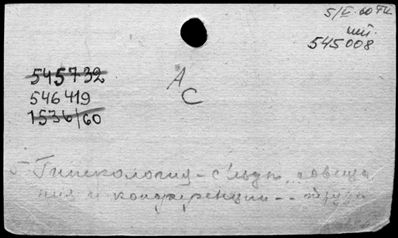 5/V.60
шт.
545008
545732
А
546419
С
1536/60
Гинекология - съезды, совеща
ния и конференции -- труды